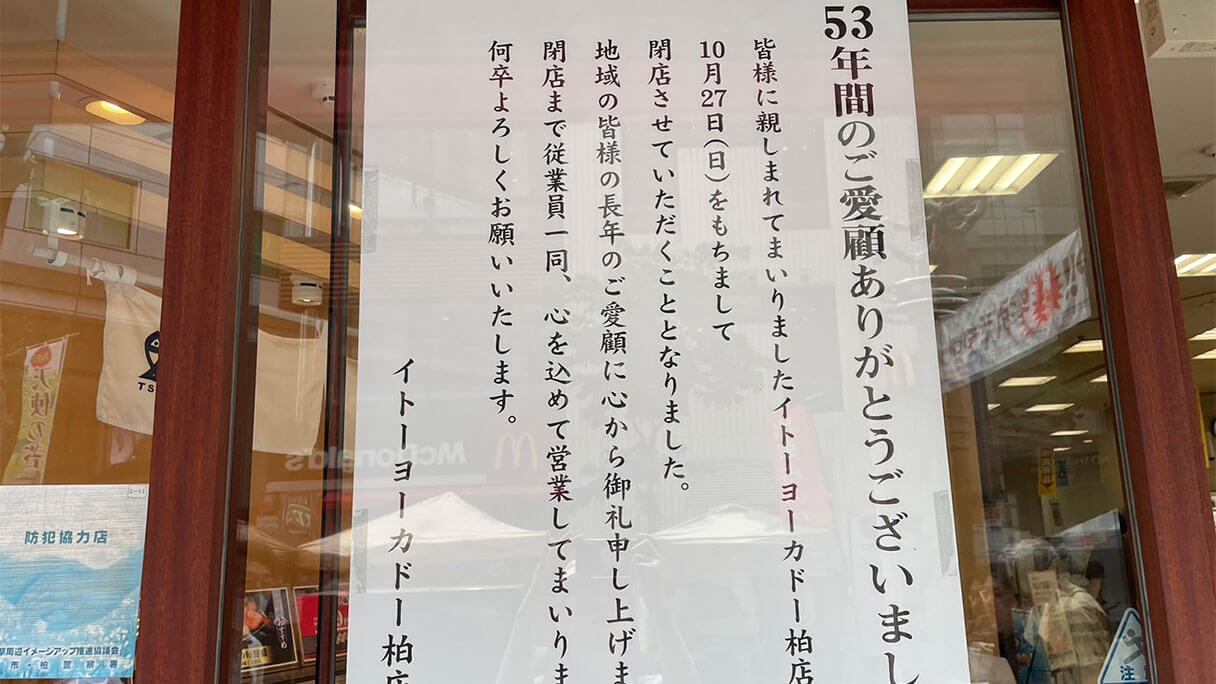 53年間のご愛顧ありがとうございまし
皆様に親しまれてまいりましたイトーヨーカドー柏店
10月27日(日)をもちまして
閉店させていただくこととなりました。
地域の皆様の長年のご愛顧に心から御礼申し上げま
閉店まで従業員一同、心を込めて営業してまいりま
何卒よろしくお願いいたします。
イトーヨーカドー柏店
McDonald's
TS
防犯協力店
周辺イメージアップ推進協議会
市・柏警察署
注